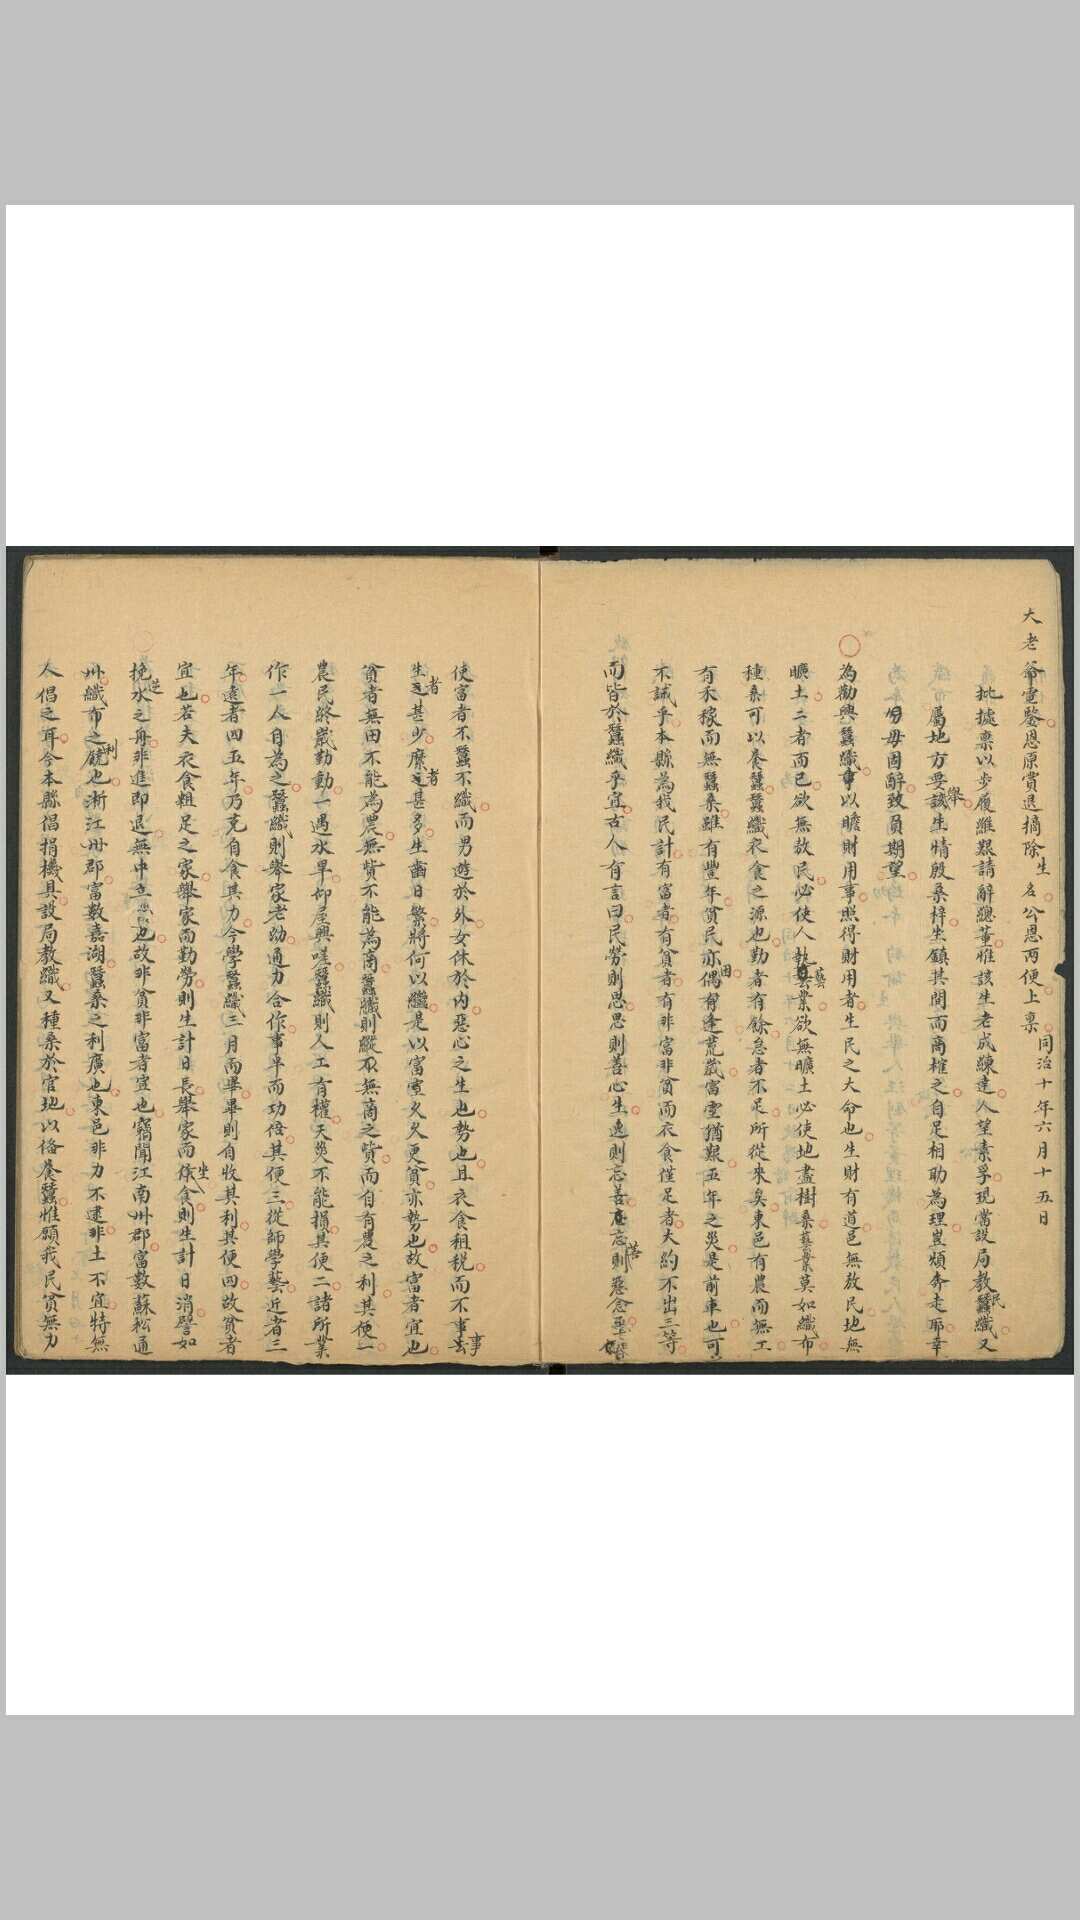 大老爺電鑒恩原賞退摘除生名公恩两便上稟 同治十年六月十五日
批據稟以步履維艱請辭總董惟該生老成練達人望素孚現當設局教民蠶織又
屬地方要舉該生情殷桑梓生鎮其間而商榷之自足相助為理豈煩奔走耶幸
毋固辭致負期望
為勸興蠶織事以贍財用事照得財用者生民之大命也生財有道邑無放民地無
曠土二者而已欲無放民必使人執藝業欲無曠土必使地盡樹桑藝業莫如織布
種桑可以養蠶蠶織衣食之源也勤者有餘怠者不足所從來矣東邑有農而無工
有禾稼而無蠶桑雖有豐年貧民亦田偶有逢荒歲富室猶艱五年之災是前車也可
不誡乎本縣為我民計有富者有貧者有非富非貧而衣食僅足者大約不出三等
而皆於蠶織乎宜古人有言曰民勞則思思則善心生逸則忘善忘善則惡念
使富者不蠶不織而男遊於外女休於内惡心之生也勢也且衣食租税而不事事
生之者甚少糜之者甚多生齒日繁將何以繼是以富室久久更貧亦勢也故富者宜也
貧者無田不能為農無貲不能為商蠶織則縱不無商之貲而自有農之利其便一
農民終歲勤動一遇水旱仰屋興嗟蠶織則人工有權天災不能損其便二諸所業
作一人自為之蠶織則舉家老幼通力合作事半而功倍其便三從師學藝近者三
年遠者四五年乃克自食其力今學蠶織三月而畢畢則有收其利其便四故貧者
宜也若夫衣食粗足之家舉家而勤勞則生計日長舉家而坐食則生計日消譬如
挽逆水之舟非進即退無中立也故非貧非富者宜也竊聞江南州郡富數蘇松通
州織布之利饒也浙江州郡富數嘉湖蠶桑之利廣也東邑非力不逮非土不宜特無
人倡之耳今本縣倡捐機具設局教織又種桑於官地以俻養蠶惟願我民貧無力